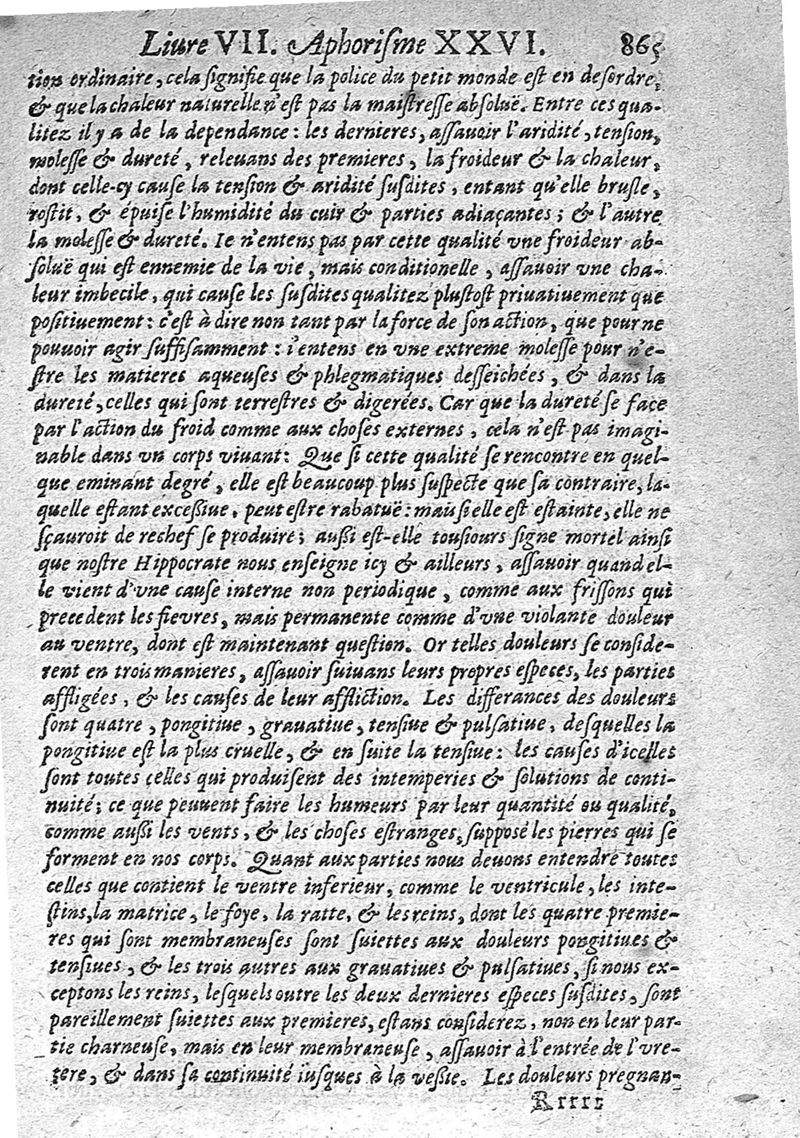 Liure VII. Aphoriſme XXVI. 865
tion ordinaire, cela ſignifie que la police du petit monde eſt en deſordre,
& que la chaleur naturelle n'eſt pas la maiſtreſſe abſoluë. Entre ces qua-
litez il y a de la dependance : les dernieres, aſſauoir l'aridité, tenſion,
moleſſe & dureté, releuans des premieres, la froideur & la chaleur,
dont celle-cy cauſe la tenſion & aridité ſuſdites, entant qu'elle bruſle,
roſtit, & épuiſe l'humidité du cuir & parties adiaçantes ; & l'autre
la moleſſe & dureté. Ie n'entens pas par cette qualité vne froideur ab-
ſoluë qui eſt ennemie de la vie, mais conditionelle, aſſauoir vne cha-
leur imbecile, qui cauſe les ſuſdites qualitez pluſtoſt priuatiuement que
poſitiuement : c'eſt à dire non tant par la force de ſon action, que pour ne
pouuoir agir ſuffiſamment : i'entens en vne extreme moleſſe pour n'e-
ſtre les matieres aqueuſes & phlegmatiques deſſeichées, & dans la
dureté, celles qui ſont terreſtres & digerées. Car que la dureté ſe face
par l'action du froid comme aux choſes externes, cela n'eſt pas imagi-
nable dans vn corps viuant : Que ſi cette qualité ſe rencontre en quel-
que eminant degré, elle eſt beaucoup plus ſuſpecte que ſa contraire, la-
quelle eſtant exceſſiue, peut eſtre rabatuë : mais ſi elle eſt eſtainte, elle ne
ſçauroit de rechef ſe produire ; auſſi eſt-elle touſiours ſigne mortel ainſi
que noſtre Hippocrate nous enſeigne icy & ailleurs, aſſauoir quand el-
le vient d'vne cauſe interne non periodique, comme aux friſſons qui
precedent les fievres, mais permanente comme d'vne violante douleur
au ventre, dont eſt maintenant queſtion. Or telles douleurs ſe conſide-
rent en trois manieres, aſſauoir ſuiuans leurs propres eſpeces, les parties
affligées, & les cauſes de leur affliction. Les differances des douleurs
ſont quatre, pongitiue, grauatiue, tenſiue & pulſatiue, deſquelles la
pongitiue eſt la plus cruelle, & en ſuite la tenſiue : les cauſes d'icelles
ſont toutes celles qui produiſent des intemperies & ſolutions de conti-
nuité ; ce que peuuent faire les humeurs par leur quantité ou qualité,
comme auſſi les vents, & les choſes eſtranges, ſuppoſé les pierres qui ſe
forment en nos corps. Quant aux parties nous deuons entendre toutes
celles que contient le ventre inferieur, comme le ventricule, les inte-
ſtins, la matrice, le foye, la ratte, & les reins, dont les quatre premie-
res qui ſont membraneuſes ſont ſuiettes aux douleurs pongitiues &
tenſiues, & les trois autres aux grauatiues & pulſatiues, ſi nous ex-
ceptons les reins, leſquels outre les deux dernieres eſpeces ſuſdites, ſont
pareillement ſuiettes aux premieres, eſtans conſiderez, non en leur par-
tie charneuſe, mais en leur membraneuſe, aſſauoir à l'entrée de l'vre-
tere, & dans ſa continuité iuſques à la veſſie. Les douleurs pregnan-
Rrrrr